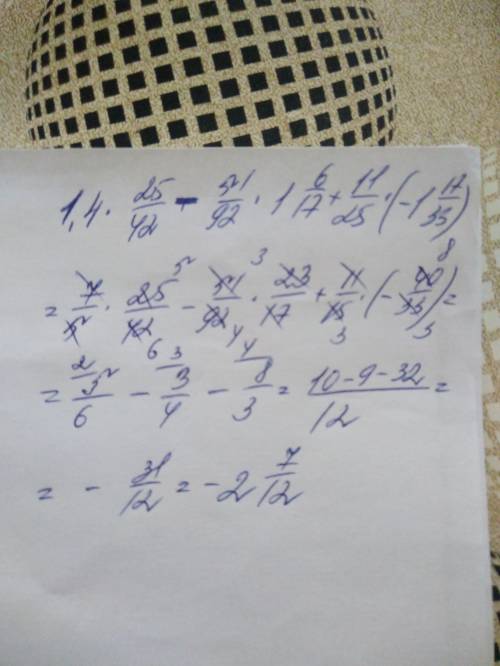 1,4 · 25/42 - 51/92 · 1 6/17 + 11/25 · (-1 17/33)
= 7/5 · 25/42 - 51/92 · 23/17 + 11/15 · (-40/33) =
= 5/6 - 3/4 - 8/3 = (10-9-32)/12 =
= - 31/12 = -2 7/12